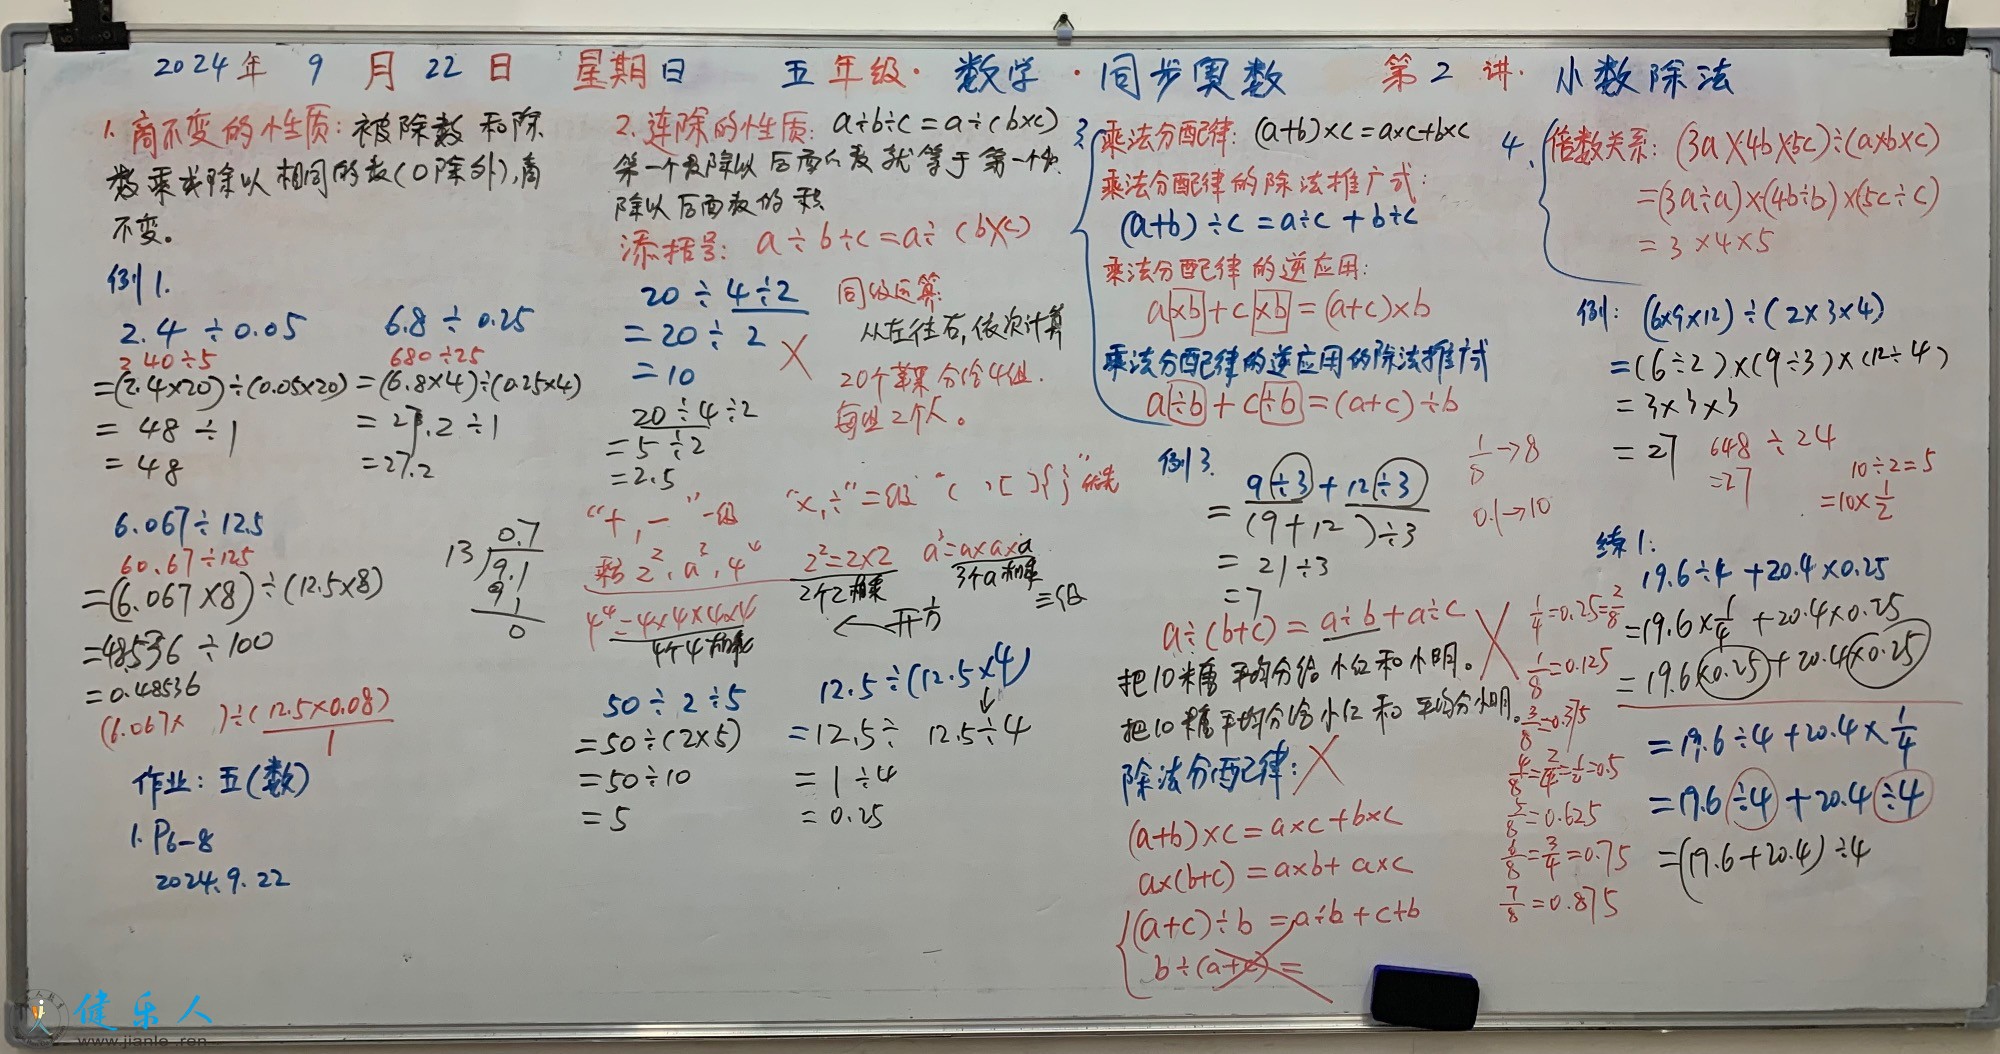 2024年 9 月 22 日 星期日 五年级·数学·同步奥数 第2讲·小数除法
1.商不变的性质:被除数和除
数乘或除以相同的数(0除外),商
不变。
例1.
2.4 ÷ 0.05
240÷5
=(2.4×20)÷(0.05×20)
= 48 ÷1
= 48
6.8 ÷ 0.25
680÷25
=(6.8×4)÷(0.25×4)
= 27.2 ÷1
=27.2
6.067÷12.5
60.67÷125
=(6.067×8)÷(12.5×8)
=48.536 ÷100
=0.48536
(6.067× )÷(12.5×0.08)
1
0.7
13 9.1
9 1
0
作业:五(数)
1.P6-8
2024.9.22
2.连除的性质:a÷b÷c=a÷(b×c)
第一个数除以后面的数就等于第一个数
除以后面数的积
添括号: a÷b÷c=a÷(b×c)
20÷4÷2
=20÷ 2 ×
=10
20÷4÷2
=5÷2
=2.5
同级运算:
从左往右,依次计算
20个苹果分给4组.
每组2个人。
"+,-"一级 "×,÷"=级 "( )[ ]{ }"优先
乘方 2²,a³,4⁴
2²=2×2
2个2相乘
a³=a×a×a
3个a相乘
三级
4⁴=4×4×4×4
4个4相乘
← 开方
50÷2÷5
=50÷(2×5)
=50÷10
=5
12.5÷(12.5×4)
↓
=12.5÷ 12.5÷4
= 1÷4
= 0.25
3.乘法分配律:(a+b)×c=a×c+b×c
乘法分配律的除法推广式:
(a+b)÷c=a÷c+b÷c
乘法分配律的逆应用:
a×b+c×b=(a+c)×b
乘法分配律的逆应用的除法推广式
a÷b+c÷b=(a+c)÷b
例3.
9÷3+12÷3
=(9+12)÷3
= 21÷3
=7
1/8→8
0.1→10
a÷(b+c)=a÷b+a÷c ×
把10糖平均分给小红和小明。
把10糖平均分给小红和平均分小明。
除法分配律:×
(a+b)×c=a×c+b×c
a×(b+c)=a×b+a×c
(a+c)÷b=a÷b+c÷b
b÷(a+c)=
4.倍数关系:(3a×4b×5c)÷(a×b×c)
=(3a÷a)×(4b÷b)×(5c÷c)
=3×4×5
例:(6×9×12)÷(2×3×4)
=(6÷2)×(9÷3)×(12÷4)
=3×3×3
=27
648÷24
=27
10÷2=5
=10×1/2
练1:
19.6÷4+20.4×0.25
=19.6×1/4+20.4×0.25
=19.6×0.25+20.4×0.25
=19.6÷4+20.4×1/4
=19.6÷4+20.4÷4
=(19.6+20.4)÷4
1/4=0.25=2/8
1/8=0.125
3/8=0.375
4/8=2/4=1/2=0.5
5/8=0.625
6/8=3/4=0.75
7/8=0.875
健乐人
www.jianle.ren